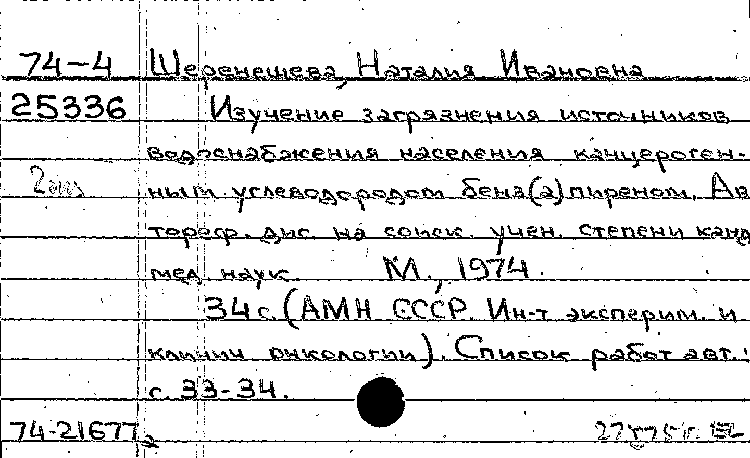 74-4 Шеренешева, Наталия Ивановна
25336 Изучение загрязнения источников
водоснабжения населения канцероген-
ным углеводородом бенз(а)пиреном. Ав
тореф. дис. на соиск. учен. степени канд
мед. наук. М., 1974.
34 с. (АМН СССР. Ин-т эксперим. и
клинич онкологии). Список работ авт.:
с. 33-34.
74-21677